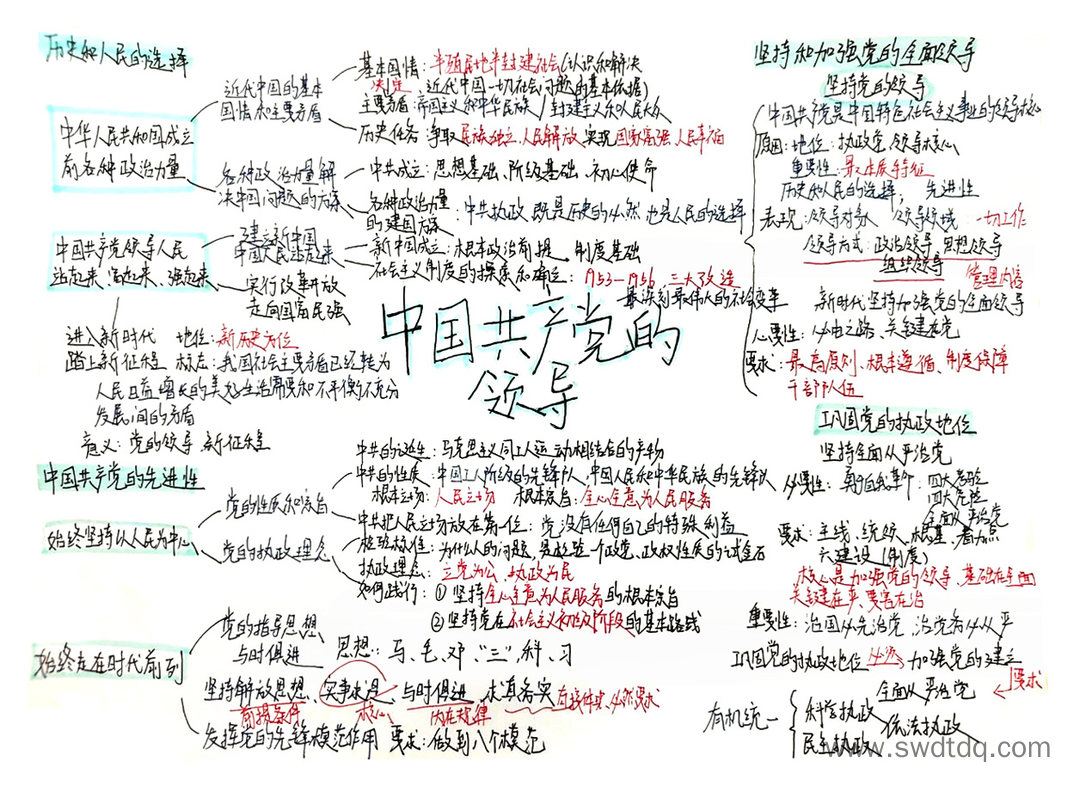 历史和人民的选择
中华人民共和国成立
前各种政治力量
近代中国的基本
国情和主要矛盾
基本国情：半殖民地半封建社会（认识和解决
决定 近代中国一切社会问题的基本依据）
主要矛盾：帝国主义和中华民族/封建主义和人民大众
历史任务：争取民族独立、人民解放，实现国家富强、人民幸福
各种政治力量解
决中国问题的方案
中共成立：思想基础、阶级基础、初心使命
各种政治力量
的建国方案：中共执政既是历史的必然也是人民的选择
中国共产党领导人民
站起来、富起来、强起来
建立新中国
中国人民站起来
新中国成立：根本政治前提、制度基础
社会主义制度的探索和确立：1953—1956，三大改造
最深刻最伟大的社会变革
实行改革开放
走向国富民强
进入新时代 地位：新历史方位
踏上新征程 标志：我国社会主要矛盾已经转为
人民日益增长的美好生活需要和不平衡不充分
发展间的矛盾
意义：党的领导、新征程
中国共产党的
领导
中国共产党的先进性
始终坚持以人民为中心
党的性质和宗旨
中共的诞生：马克思主义同工人运动相结合的产物
中共的性质：中国工人阶级的先锋队、中国人民和中华民族的先锋队
根本立场：人民立场 根本宗旨：全心全意为人民服务
党的执政理念
中共把人民立场放在第一位：党没有任何自己的特殊利益
检验标准：为什么人的问题，是检验一个政党、政权性质的试金石
执政理念：立党为公、执政为民
如何践行：①坚持全心全意为人民服务的根本宗旨
②坚持党在社会主义初级阶段的基本路线
始终走在时代前列
党的指导思想
与时俱进
思想：马、毛、邓、“三”、科、习
坚持解放思想、实事求是、与时俱进、求真务实
前提条件 核心 内在规律 必然要求
发挥党的先锋模范作用 要求：做到八个模范
坚持和加强党的全面领导
坚持党的领导
中国共产党是中国特色社会主义事业的领导核心
原因：地位：执政党、领导核心
重要性：最本质特征
历史和人民的选择；先进性
表现：领导对象、领导领域 一切工作
领导方式：政治领导、思想领导
组织领导
管理内容
新时代坚持加强党的全面领导
必要性：必由之路、关键在党
要求：最高原则、根本遵循、制度保障
干部队伍
巩固党的执政地位
坚持全面从严治党
必要性：勇于自我革命：四大考验
四大危险
全面从严治党
要求：主线、统领、根基、着力点
六建设（制度）
核心是加强党的领导、基础在全面
关键在严、要害在治
重要性：治国必先治党，治党务必从严
巩固党的执政地位 必须 加强党的建设
全面从严治党 要求
有机统一
科学执政
民主执政
依法执政
www.swdtdq.com